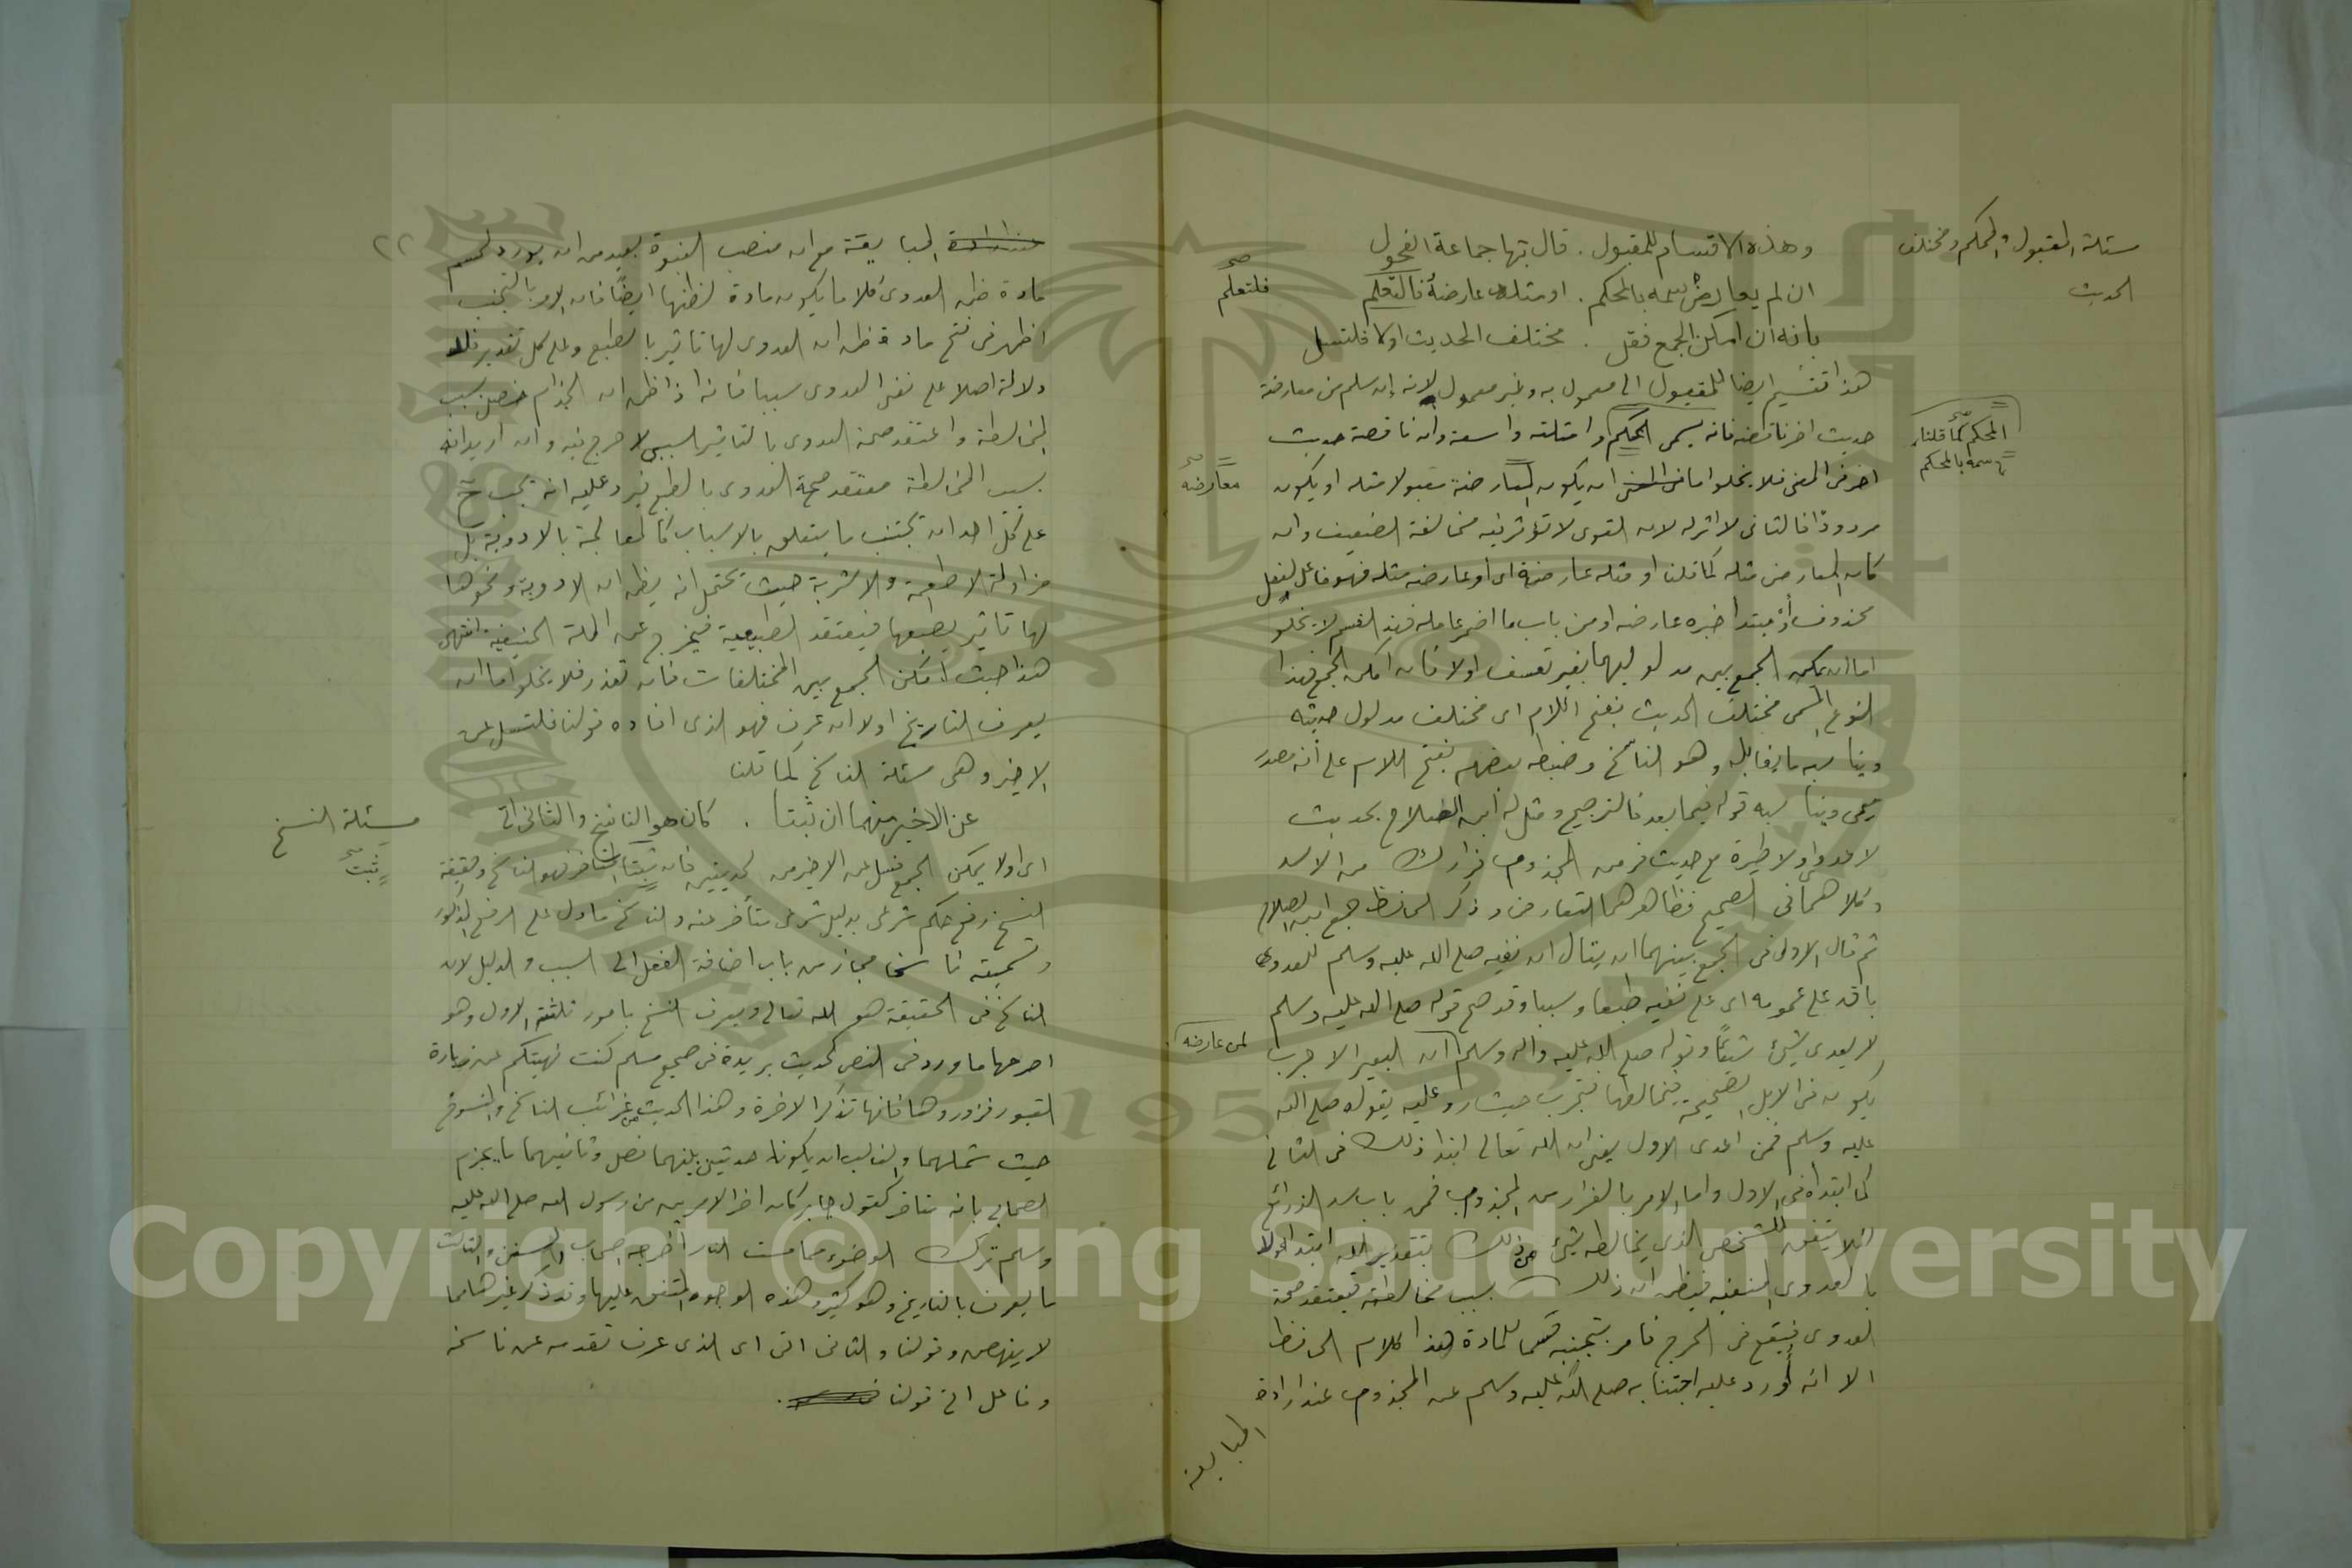 مسئلة المقبول والمحكم ومختلف
الحديث
وهذه الاقسام للمقبول . قال بها جماعة الفحول
ان لم يعارض سمه بالمحكم . او مثله عارضه فالتعلم
صح
فلتعلم
بانه ان امكن الجمع فقل . مختلف الحديث اولا فلتسل
هذا تقسيم ايضا للمقبول الى معمول به وغير معمول لانه إن سلم من معارضة
حديث اخر ناقضه فانه يسمى المحكم وامثلته واسعة وان ناقضه حديث
صح
المحكم كما قلنا
سمه بالمحكم
اخر فى المعنى فلا يخلو اما ان يكون المعارضة مقبولا مثله او يكون
صح
معارضه
مردودا فالثانى لا اثر له لان القوى لا تؤثر فيه مخالفة الضعيف وان
كان المعارض مثله كما قلنا او مثله عارضه اى او عارضه مثله فهو فاعل لفعل
محذوف أو مبتدا خبره عارضه او من باب ما اضمر عامله فهذ القسم لا يخلو
اما ان يمكن الجمع بين مدلوليهما بغير تعسف اولا فان امكن الجمع فهذا
النوع المسمى مختلف الحديث بفتح اللام اى مختلف مدلول حديثه
ويناسبه ما يقابله وهو الناسخ وضبطه بعضهم بفتح اللام على أنه مصدر
ميمى ويناسبه قوله فيما بعد فالترجيح ومثل له ابن الصلاح بحديث
لا عدوى ولا طيرة مع حديث فر من المجذوم فرارك من الاسد
وكلاهما فى الصحيح فظاهرهما التعارض وذكر الحافظ جمع ابن الصلاح
ثم قال الاولى فى الجمع بينهما ان يقال ان نفيه صلى الله عليه وسلم للعدوى
باق على عمومه اى على نفيه طبعا وسببا وقد صح قوله صلى الله عليه وسلم
لا يعدى شيئ شيئًا وقوله صلى الله عليه واله وسلم ان البعير الاجرب
لمن عارضه
يكون فى الابل الصحيحة فيخالطها فتجرب حيث رد عليه بقوله صلى الله
عليه وسلم فمن اعدى الاول يعنى ان الله تعالى ابتدا ذلك فى الثانى
كما ابتداه فى الاول واما الامر بالفرار من المجذوم فمن باب سد الذرائع
لئلا يتفق للشخص الذى يخالطه شيئ من ذلك بتقدير الله ابتدا لا
بالعدوى المنفيه فيظن ان ذلك بسبب مخالطته فيعتقد صحة
العدوى فيقع فى الحرج فامر بتجنبه حسما للمادة هذا كلام الحافظ
الا انه أورد عليه اجتنابه صلى الله عليه وسلم عن المجذوم عند ارادة
المبايعة
٢٢
المبايعة مع ان منصب النبوة بعيد من ان يورد لحسم
مادة ظن العدوى كلاما يكون مادة لظنها ايضًا فان الامر بالتجنب
اظهر فى فتح مادة ظن ان العدوى لها تاثير بالطبع وعلى كل تقدير فلا
دلالة اصلا على نفى العدوى سببا فانه اذا ظن ان الجذام حصل بسبب
المخالطة واعتقد صحة العدوى بالتاثير السببى لا حرج فيه وان اريد انه
بسبب المخالطة معتقد صحة العدوى بالطبع فيرد عليه انه يجب ح
على كل احد ان يجتنب ما يتعلق بالاسباب كالمعالجة بالادوية بل
مزاولة الاطعمة والاشربة حيث يحتمل انه يظن ان الادوية ونحوها
لها تاثير بطبعها فيعتقد الطبيعية فيخرج عن الملة الحنيفية انتهى
هذا حيث امكن الجمع بين المختلفات فان تعذر فلا يخلو اما ان
يعرف التاريخ اولا ان عرف فهو الذى افاده قولنا فلتسل عن
الاخير وهى مسئلة الناسخ كما قلنا
عن الاخير منهما ان ثبتا . كان هو الناسخ والثانى اتى
مسئلة النسخ
صح
ثبت
اى اولا يمكن الجمع فسل عن الاخير من الحديثين فان ثبتا التاخر فهو الناسخ وحقيقة
النسخ رفع حكم شرعى بدليل شرعى متأخر عنه والناسخ ما دل على الرفع المذكور
وتسميته ناسخا مجاز من باب اضافة الفعل الى السبب والدليل لان
الناسخ فى الحقيقة هو الله تعالى ويعرف النسخ بامور ثلثة الاول وهو
اصرحها ما ورد فى النص كحديث بريدة فى صحيح مسلم كنت نهيتكم عن زيارة
القبور فزوروها فانها تذكر الاخرة وهذا الحديث من غرائب الناسخ والمنسوخ
حيث شملهما والغالب ان يكونا حديثين بينهما فصل وثانيهما ما يجزم
الصحابى بانه متاخر كقول جابر كان اخر الامرين من رسول الله صلى الله عليه
وسلم ترك الوضوء مما مست النار أخرجه اصحاب السنن والثالث
ما يعرف بالتاريخ وهو كثير وهذه الوجوه المتفق عليها وقد ذكر غيرها مما
لا ينهض وقولنا والثانى اتى اى الذى عرف تقدمه عن ناسخه
وفاعل اتى قولنا